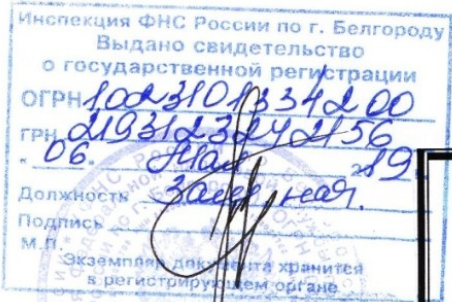 Инспекция ФНС России по г. Белгороду
Выдано свидетельство
о государственной регистрации
ОГРН 1023101334200
ГРН 2193123242156
" 06. мая 2019
Должность Зам. нач.
Подпись
М.П.
Экземпляр документа хранится
в регистрирующем органе